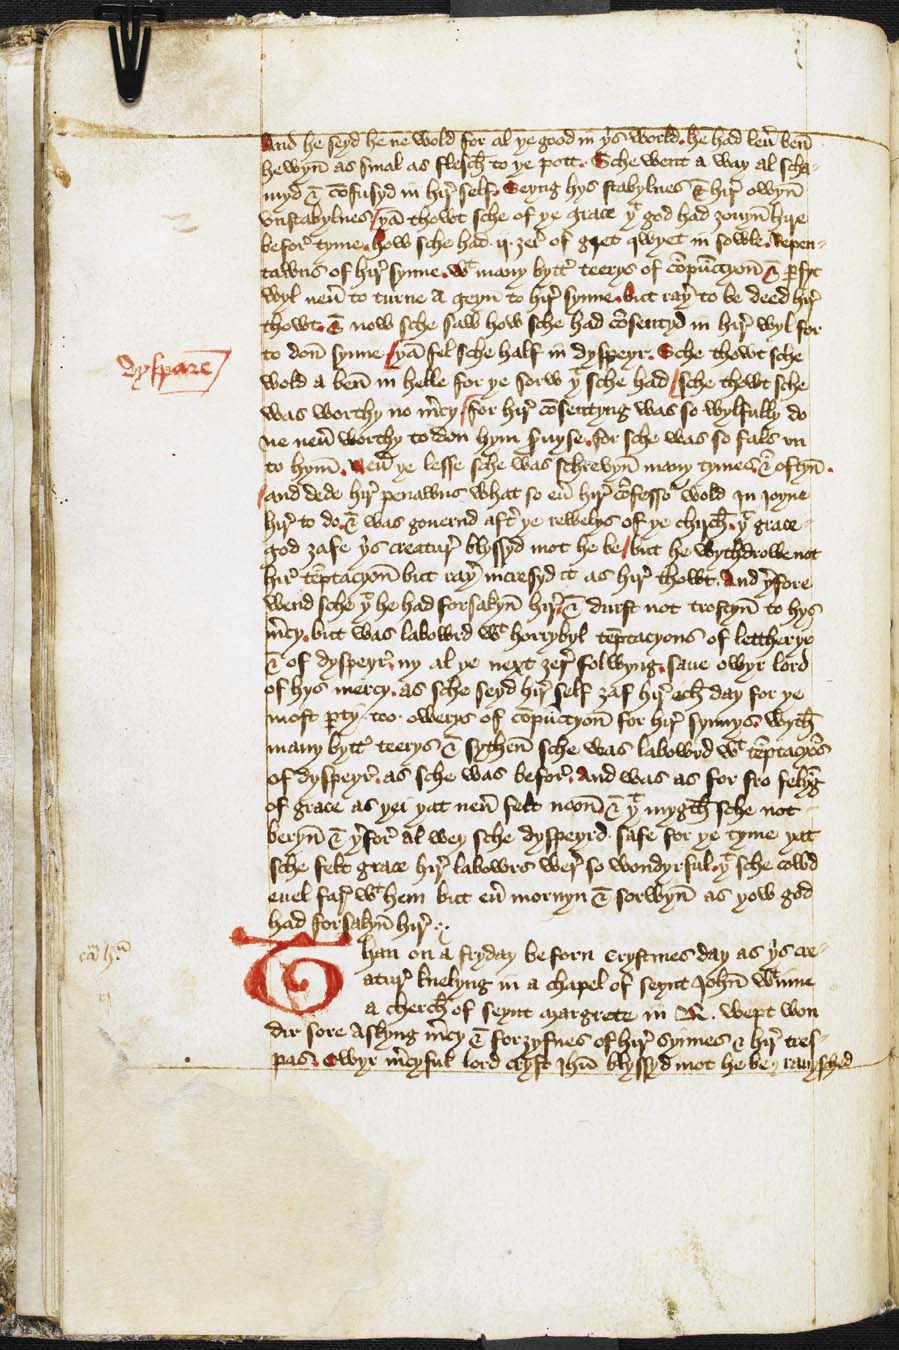 And he seyd he ne wold for al ye good in yͥs world. he had leuͬ ben
hewyn̄ as smal as flesch to ye pott. Sche went a way al scha-
myd & cōfusyd in hirͤ self. Seyng hys stabylnes & hirͤ owyn̄
vnstabylnes / yā thowt sche of ye grace yͭ god had zouyn̄ hire
beforͤ tyme. how sche had .ij. zerͤ of gret qwyet in sowle. Repen-
tawns of hirͤ synne. wͭ many byttͬ teerys of cōpūccyon̄ & ꝑfyt
wyl neuͬ to turne a geyn to hirͤ synne. but rayͬ to be deed hirͤ
thowt. & now sche saw how sche had cōsentyd in hirͤ wyl for
to don̄ synne / yā fel sche half in dyspeyr. Sche thowt sche
dyspare
wold a ben̄ in helle for ye sorw yͭ sche had / sche thowt sche
was worthy no mͬcy / for hirͤ cōsentyng was so wylfully do
ne neuͬ worthy to don hym sͬuyse. for sche was so fals vn
to hym̄. Neuͬ ye lesse sche was schrevyn̄ many tymes & oftyn̄.
/ and dede hirͤ penawns what so euͬ hirͤ cōfessoͬ wold In Ioyne
hirͤ to do. & was gouernd aftͬ ye rewelys of ye chirch. yͭ grace
god zafe yͥs creaturͤ blyssyd mot he be / but he wythdrowe not
hirͤ tēptacyon̄ but rayͬ incresyd it as hirͤ thowt. And yͬfore
wend sche yͭ he had forsakyn̄ hirͤ. & durst not trostyn̄ to hys
mͬcy. but was labowrd wͭ horrybyl tēptacyons of lettherye
& of dyspeyrͤ. ny al ye next zerͤ folwyng. saue owyr lord
of hys mercy. as sche seyd hirͤ self zaf hirͤ ech day for ye
most ꝑty. too. owerys of cōpūctyon̄ for hirͤ synnys. wyth
many byttͬ teerys & sythen̄ sche was labowyd wͭ tēptacyōs
of dyspeyrͤ. as sche was beforͤ. And was as for fro felyng
of grace as yei yat neuͬ felt noon̄ & yͭ mygth sche not
beryn̄ & yͬforͤ al wey sche dyspeyrd. safe for ye tyme yat
sche felt grace hirͤ labowrs werͤ so wondyrful. yͭ sche cowd
euel farͤ wͭ hem but euͬ mornyn & sorwyn̄ as yow god
had forsakyn̄ hirͤ.
Than on a fryday beforn Crystmes day as yͥs cre-
aturͤ knelyng in a chapel of seynt Johan̄ wͭ inne
a cherch of seynt Margrete in N. wept won
dir sore Askyng mͬcy & forzyfnes of hirͤ synnes & hirͤ tres-
pas. Owyr mͬcyful lord cryst ihū blyssyd mot he be. rauysched